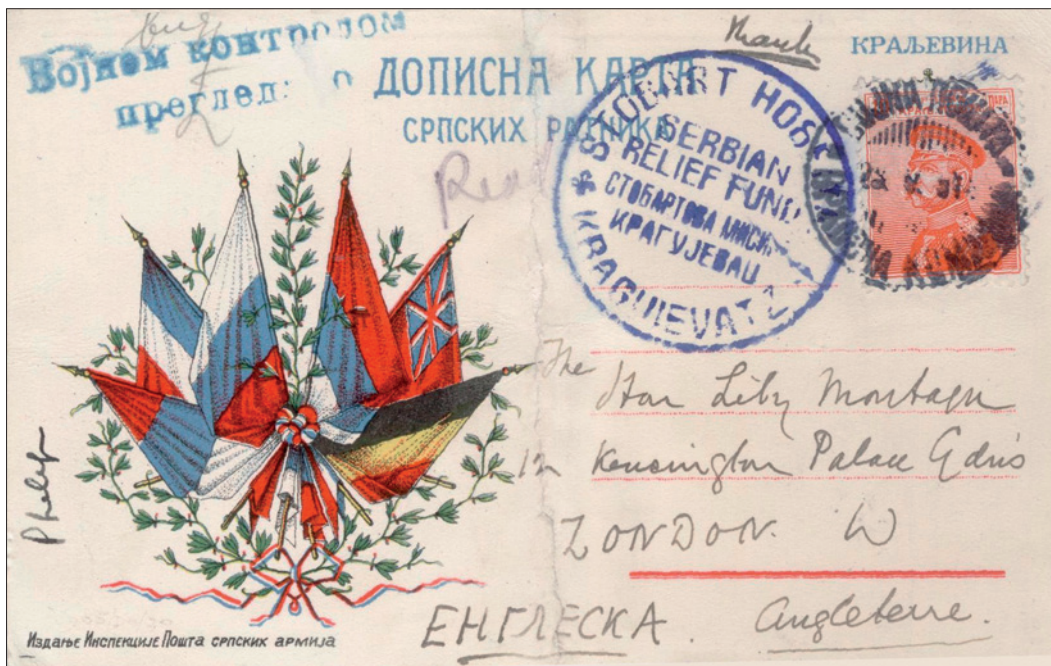 Војном контролом
прегледано
ДОПИСНА КАРТА
СРПСКИХ РАТНИКА
КРАЉЕВИНА
Thank
Read
STOBART HOSPITAL
SERBIAN
RELIEF FUND
СТОБАРТОВА МИСИЈА
КРАГУЈЕВАЦ
* KRAGUIEVATZ
ПАРА
The
Hon Lily Montagu
12 Kensington Palace Gdns
LONDON. W
ЕНГЛЕСКА. Angleterre.
Издање Инспекције Пошта српских армија